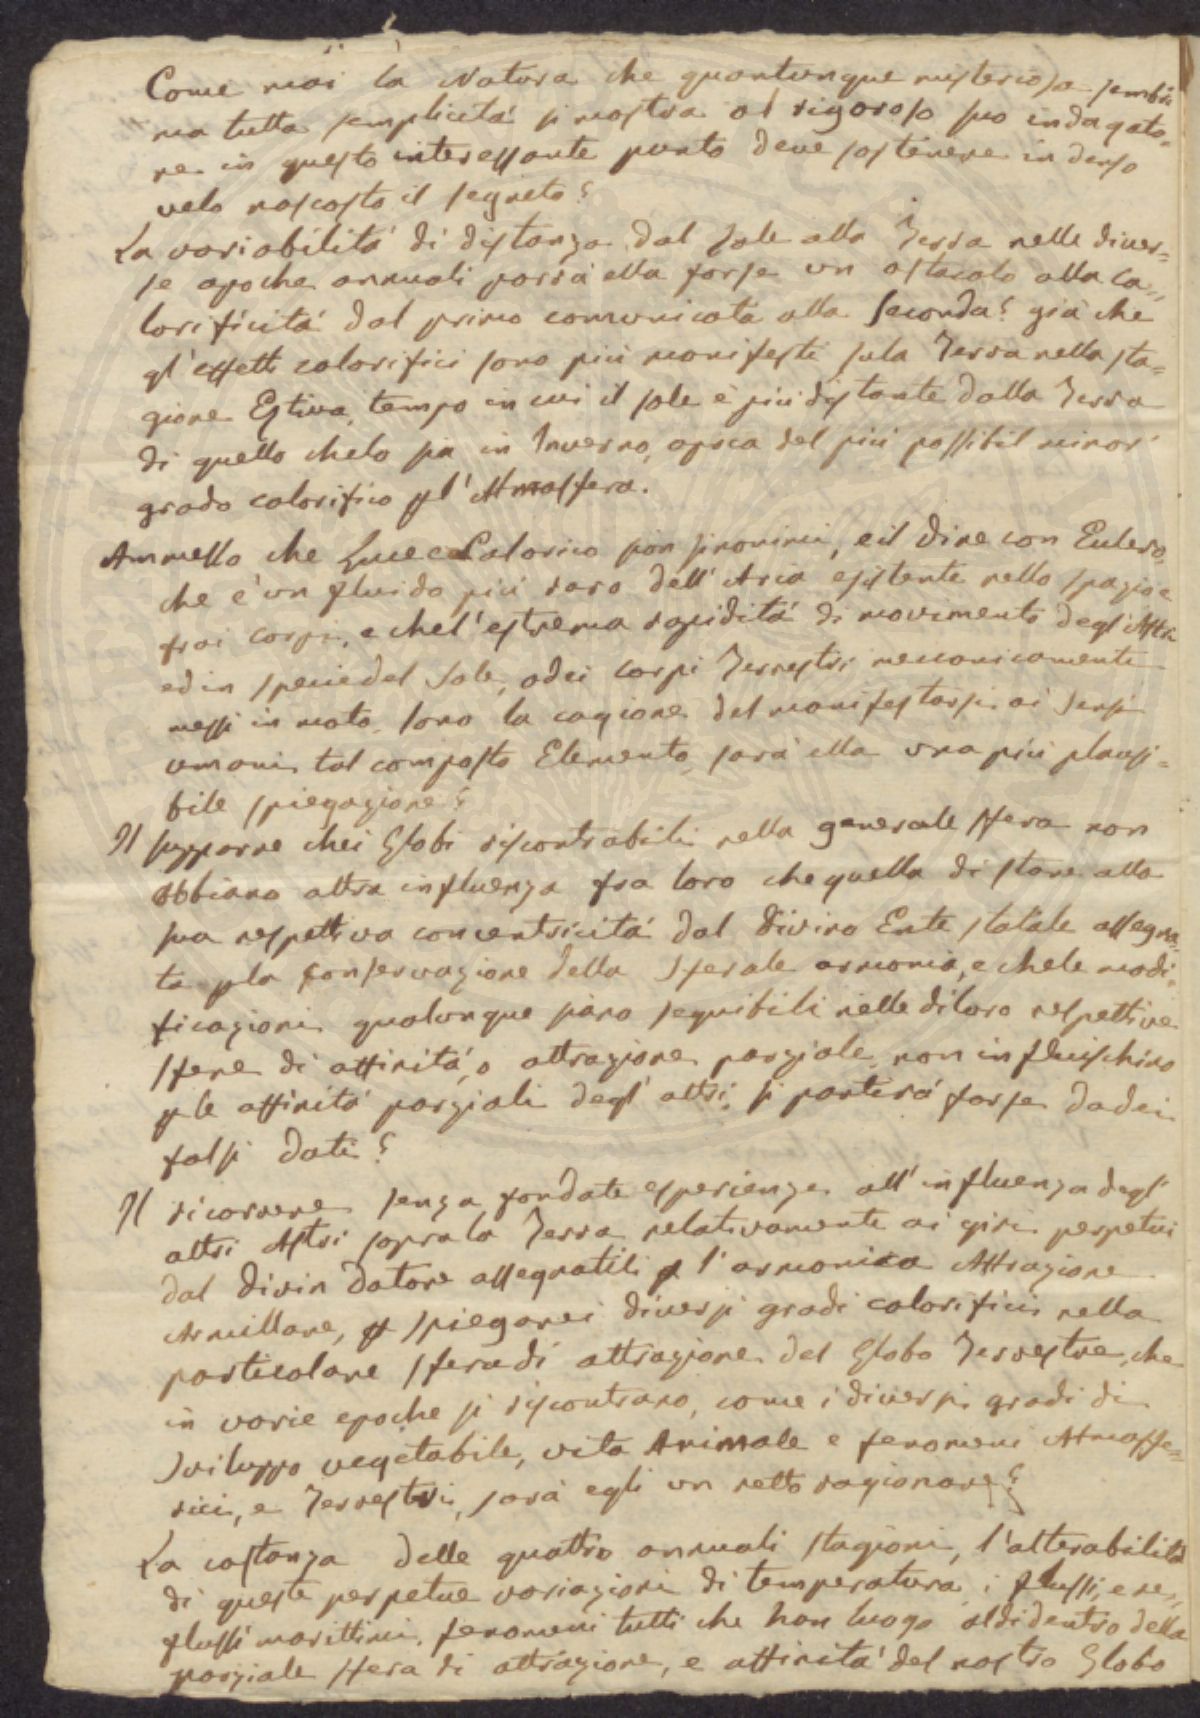 Come mai la Natura che quantunque misteriosa sembri
ma tutta semplicità si mostra al rigoroso suo indagato=
re in questo interessante punto deve sostenere in denso
velo nascosto il segreto?
La variabilità di distanza dal Sole alla Terra nelle diver=
se epoche annuali porrà ella forse un ostacolo alla ca=
lorificità dal primo comunicata alla seconda? già che
gl'effetti calorifici sono più manifesti sula Terra nella sta=
gione Estiva, tempo in cui il sole è più distante dalla Terra
di quello chelo sia in Inverno, epoca del più possibil minor
grado calorifico pl'Atmosfera.
Ammesso che Luce e Calorico sion sinonimi, e il dire con Eulero,
che è un fluido più raro dell'Aria esistente nello spazio e
frai corpi, e chel'estrema rapidità di movimento degl'Astri
ed in specie del Sole, odei corpi Terrestri meccanicamente
messi in moto, sono la cagione del manifestarsi ai sensi
umani tal composto Elemento, sarà ella una più plausi=
bile spiegazione?
Il supporre chei Globi riscontrabili nella generale sfera non
abbiano altra influenza fra loro che quella di stare alla
sua respettiva concentricità dal Divino Ente statale assegna=
ta pla conservazione della sferale armonia, e chele modi=
ficazioni qualunque siano seguibili nelle diloro respettive
sfere di affinità, o attrazione parziale, non influischino
ple affinità parziali degl'altri, si partirà forse dadei
falsi dati?
Il ricorrere senza fondate esperienze all'influenza degl'
altri Astri soprala Terra relativamente ai giri perpetui
dal divin Datore assegnatili p l'armonica Attrazione
Armillare, p spiegarei diversi gradi calorifici nella
particolare sfera di attrazione del Globo Terrestre, che
in varie epoche si riscontrano, come i diversi gradi di
sviluppo vegetabile, vita Animale e fenomeni Atmosfe=
rici, e Terrestri, sarà egli un retto ragionare?
La costanza delle quattro annuali stagioni, l'alterabilità
di queste perpetue variazioni di temperatura, i flussi, e re=
flussi marittimi, fenomeni tutti che han luogo aldidentro della
parziale sfera di attrazione, e affinità del nostro Globo